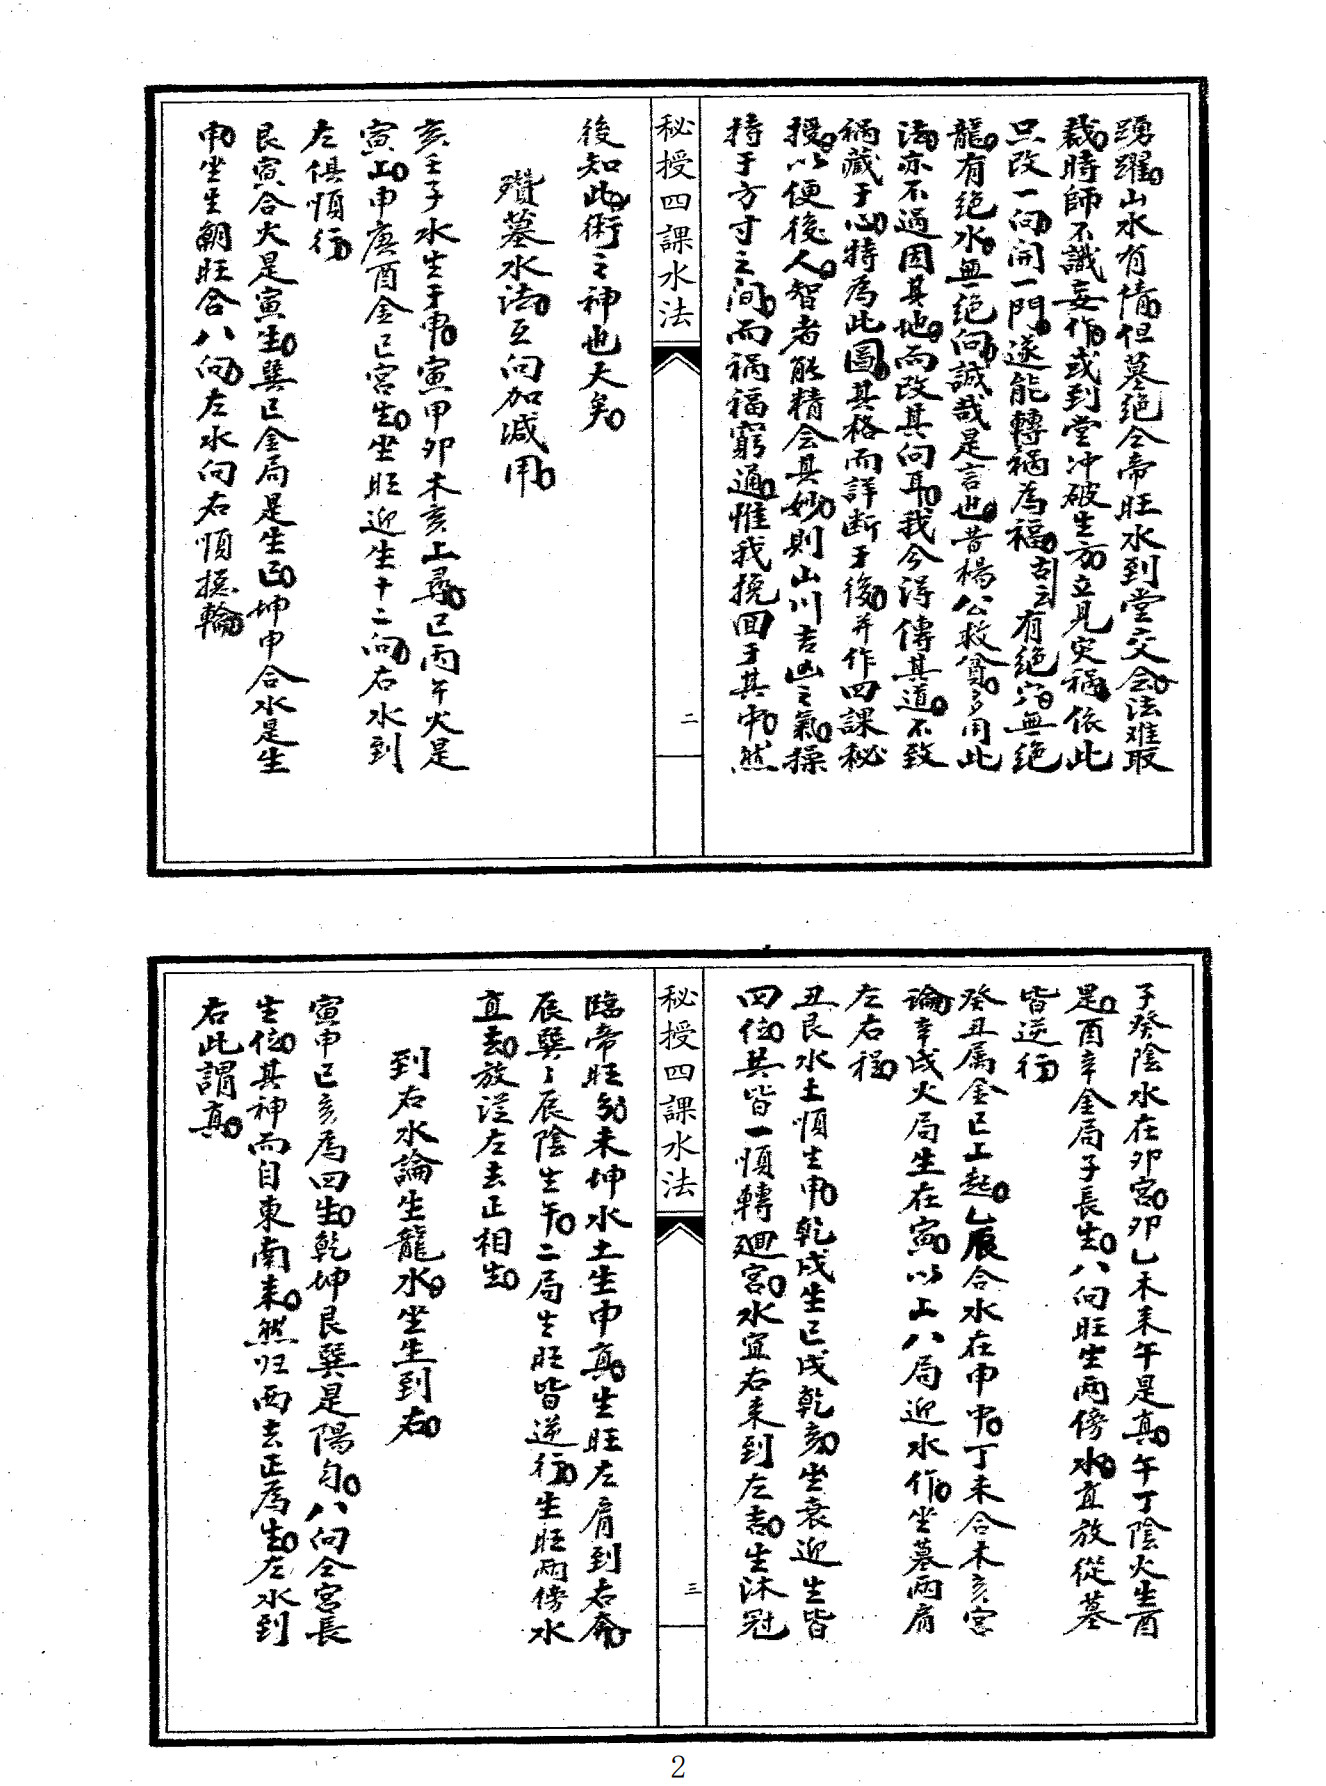 踴躍山水有情但墓絕仝帝旺水到堂交会法难取
裁時師不識妄作或到堂冲破生方立見灾禍依此
只改一向開一門遂能轉禍為福訣云有絕穴無絕
龍有絕水無絕向誠哉是言也昔楊公救貧多用此
法亦不過因其地而改其向耳我今得傳其道不致
禍藏于心特為此圖其格而詳断于後并作四課秘
授以便後人智者能精会其妙則山川吉凶之氣操
持于方寸之间而禍福窮通惟我挽囬于其中然
秘授四課水法
二
後知此術之神也天矣
攢墓水法互向加減用
亥壬子水生于申寅甲卯木亥上尋巳丙午火是
寅上申庚酉金巳宮生坐旺迎生十二向右水到
左俱順行
艮寅合火是寅生巽巳金局是生巳坤申合水是生
申坐生朝旺合八向左水向右順摁輪
子癸陰水在卯宮卯乙木来午是真午丁陰火生酉
是酉辛金局子長生八向旺生两傍水直放從墓
皆逆行
癸丑属金巳上起乙辰合水在申申丁未合木亥宮
論辛戌火局生在寅以上八局迎水作坐墓两肩
左右程
丑艮水土順生申乾戌生巳戌乾亥坐衰迎生皆
四位其皆一順轉廻宮水宜右来到左吉生沐冠
秘授四課水法
三
臨帝旺勿未坤水土生申真生旺左肩到右奔
辰巽丶辰陰生午二局生旺皆逆行生旺两傍水
直去放從左去正相生
到右水論生龍水坐生到右
寅申巳亥為四生乾坤艮巽是陽勻八向仝宮長
生位其神而自東南来然归西去正為生左水到
右此謂真
2